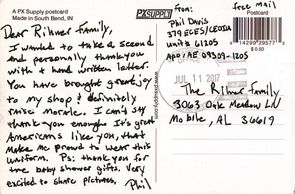 A PX Supply postcard
Made in South Bend, IN
Dear Rihner Family,
I wanted to take a second
and personally thank you
with a hand written letter.
You have brought great joy
to my shop & definitely
raise morale. I can't say
thank you enough. It's great
Americans like you, that
make me proud to wear this
uniform. Ps: thank you for
the baby shower gifts. Very
excited to share pictures.
Phil
PX SUPPLY
www.pxsupply.com
from:
Phil Davis
379 ECES/CEOIA
Unit 61205
APO/AE 09309-1205
free Mail
$0.50
JUL 11 2017
The Rihner family
3063 Oak Meadow LN
Mobile, AL 36619